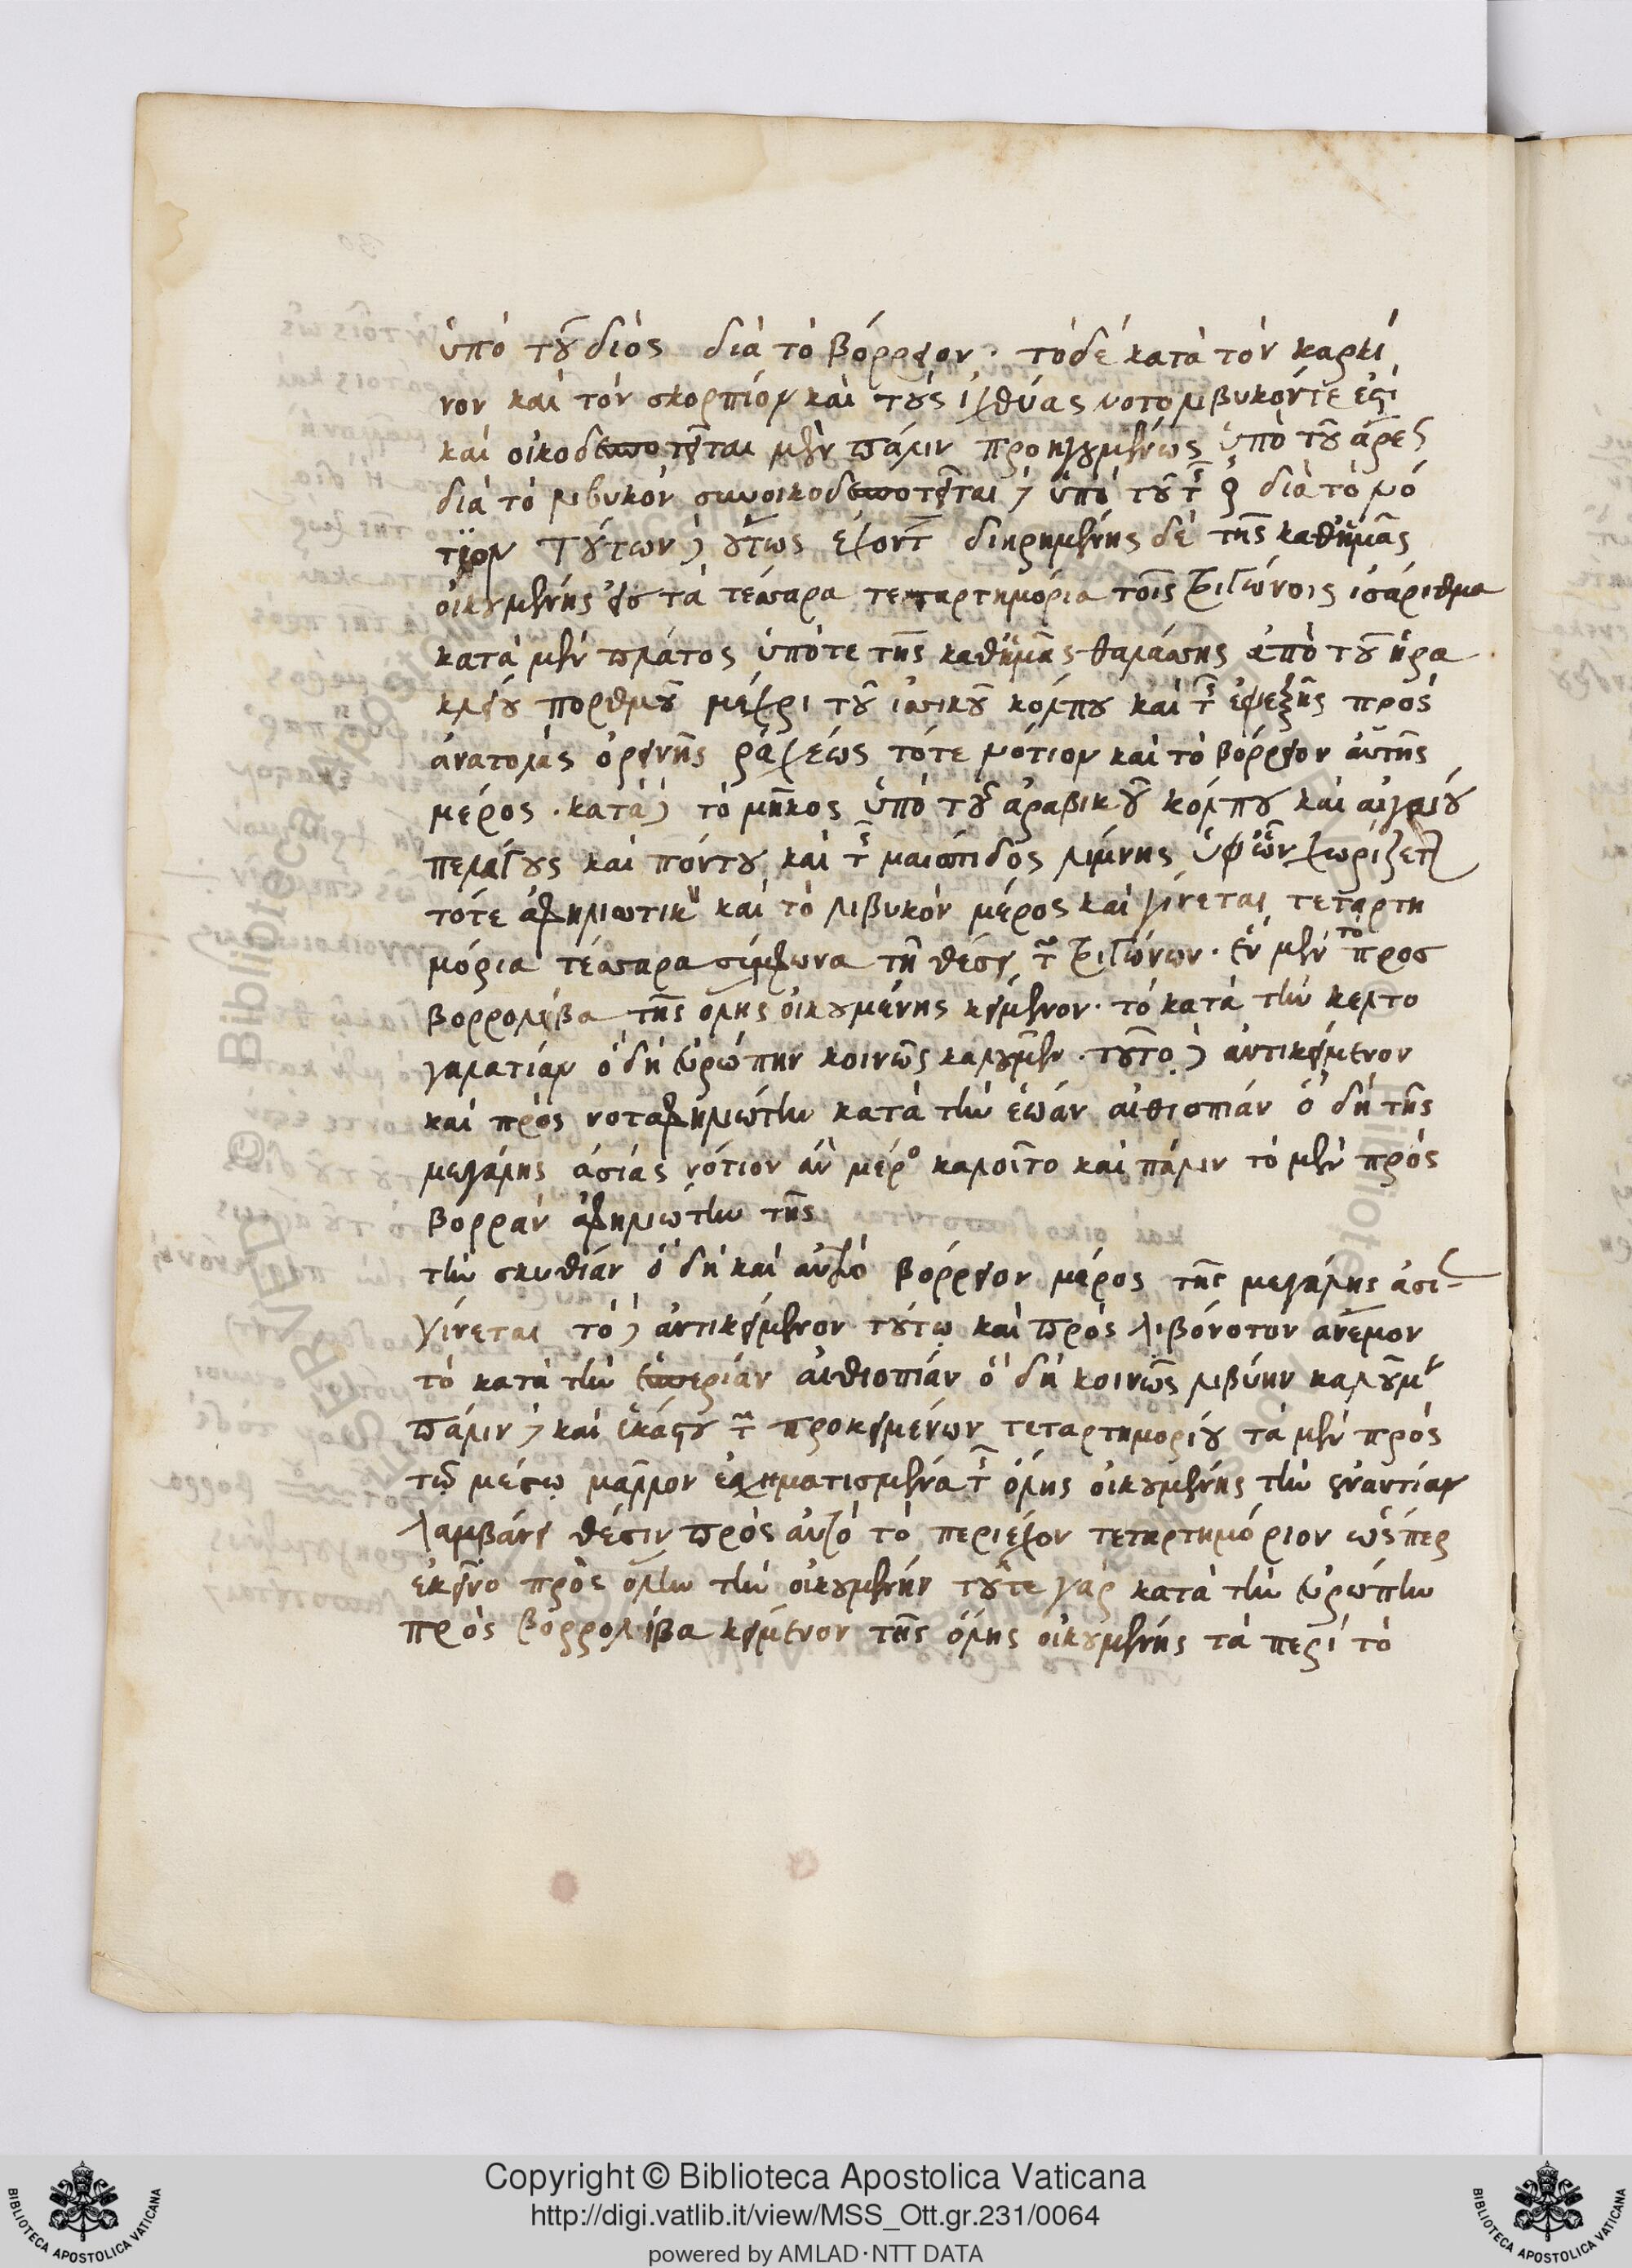 ὑπὸ τοῦ διὸς διὰ τὸ βόρρειον· τὸ δὲ κατὰ τὸν καρκί
νον καὶ τὸν σκορπίον καὶ τοὺς ἰχθύας νοτολιβυκόν τε ἐστὶ
καὶ οἰκοδεσποτεῖται μὲν πάλιν προηγουμένως ὑπὸ τοῦ ἄρεως
διὰ τὸ λιβυκὸν συνοικοδεσποτεῖται δὲ ὑπὸ τοῦ τῆς ♀ διὰ τὸ νό
τιον τούτων δὲ οὕτως ἐχόντων διηρημένης δὲ τῆς καθ' ἡμᾶς
οἰκουμένης εἰς τὰ τέσσαρα τεταρτημόρια τοῖς τριγώνοις ἰσάριθμα
κατὰ μὲν πλάτος ὑπό τε τῆς καθ' ἡμᾶς θαλάσσης ἀπὸ τοῦ ἡρα
κλείου πορθμοῦ μέχρι τοῦ ἰσσικοῦ κόλπου καὶ τῆς ἐφεξῆς πρὸς
ἀνατολὰς ὀρεινῆς ῥάχεως τό τε νότιον καὶ τὸ βόρρειον αὐτῆς
μέρος· κατὰ δὲ τὸ μῆκος ὑπὸ τοῦ ἀραβικοῦ κόλπου καὶ αἰγαίου
πελάγους καὶ πόντου καὶ τῆς μαιώτιδος λίμνης ὑφ' ὧν χωρίζεται
τό τε ἀπηλιωτικὸν καὶ τὸ λιβυκὸν μέρος καὶ γίνεται τεταρτη
μόρια τέσσαρα σύμφωνα τῇ θέσει τῶν τριγώνων· ἓν μὲν τὸ πρὸς
βορρολίβα τῆς ὅλης οἰκουμένης κείμενον· τὸ κατὰ τὴν κελτο
γαλατίαν ὃ δὴ εὐρώπην κοινῶς καλοῦμεν· τούτῳ δὲ ἀντικείμενον
καὶ πρὸς νοταπηλιώτην κατὰ τὴν ἑῴαν αἰθιοπίαν ὃ δὴ τῆς
μεγάλης ἀσίας νότιον ἂν μέρος καλοῖτο καὶ πάλιν τὸ μὲν πρὸς
βορρᾶν ἀπηλιώτην τῆς
τὴν σκυθίαν ὃ δὴ καὶ αὐτὸ βόρρειον μέρος τῆς μεγάλης ἀσίας
γίνεται τὸ δὲ ἀντικείμενον τούτῳ καὶ πρὸς λιβόνοτον ἄνεμον
τὸ κατὰ τὴν ἑσπερίαν αἰθιοπίαν ὃ δὴ κοινῶς λιβύην καλοῦμεν
πάλιν δὲ καὶ ἑκάστου τῶν προκειμένων τεταρτημορίου τὰ μὲν πρὸς
τῷ μέσῳ μᾶλλον ἐσχηματισμένα τῆς ὅλης οἰκουμένης τὴν ἐναντίαν
λαμβάνει θέσιν πρὸς αὐτὸ τὸ περιέχον τεταρτημόριον ὥσπερ
ἐκεῖνο πρὸς ὅλην τὴν οἰκουμένην τοῦ τε γὰρ κατὰ τὴν εὐρώπην
πρὸς βορρολίβα κείμενον τῆς ὅλης οἰκουμένης τὰ περὶ τὸ
Copyright © Biblioteca Apostolica Vaticana
http://digi.vatlib.it/view/MSS_Ott.gr.231/0064
powered by AMLAD·NTT DATA
BIBLIOTECA APOSTOLICA VATICANA
BIBLIOTECA APOSTOLICA VATICANA